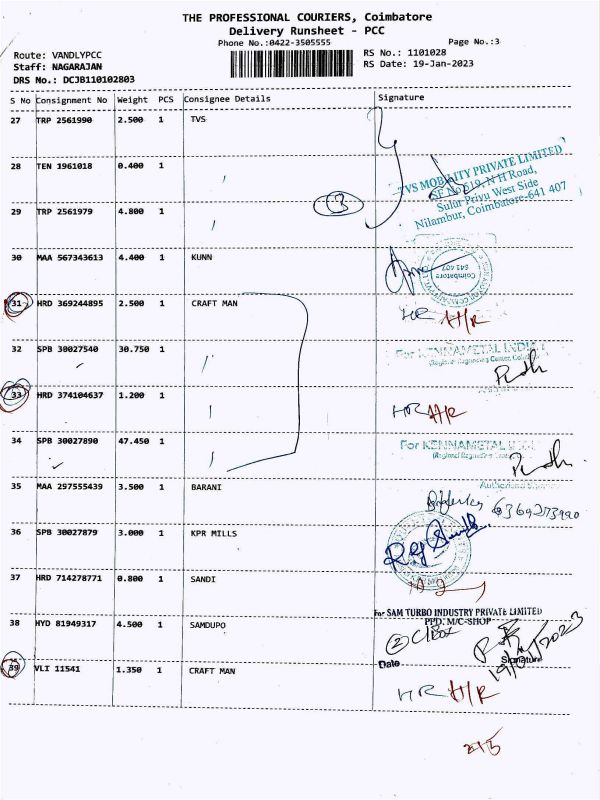 THE PROFESSIONAL COURIERS, Coimbatore
Delivery Runsheet - PCC
Phone No.:0422-3505555
Page No.:3
Route: VANDLYPCC
RS No.: 1101028
Staff: NAGARAJAN
RS Date: 19-Jan-2023
DRS No.: DCJB110102803
S No Consignment No Weight PCS Consignee Details Signature
27 TRP 2561990 2.500 1 TVS
28 TEN 1961018 0.400 1
TVS MOBILITY PRIVATE LIMITED
SF No 519, N H Road,
Sulur Privu West Side
Nilambur, Coimbatore-641 407
3
29 TRP 2561979 4.800 1
30 MAA 567343613 4.400 1 KUNN
Coimbatore
641 407
31 HRD 369244895 2.500 1 CRAFT MAN
HR H/R
32 SPB 30027540 30.750 1
For KENNAMETAL INDIA
33 HRD 374104637 1.200 1
HR H/R
34 SPB 30027890 47.450 1
For KENNAMETAL
35 MAA 297555439 3.500 1 BARANI
Authorised
6369273990
36 SPB 30027879 3.000 1 KPR MILLS
37 HRD 714278771 0.800 1 SANDI
For SAM TURBO INDUSTRY PRIVATE LIMITED
PPD. M/C-SHOP
38 HYD 81949317 4.500 1 SAMDUPO
2 C/Box
Date
Signature
19/01/2023
39 VLI 11541 1.350 1 CRAFT MAN
HR H/R